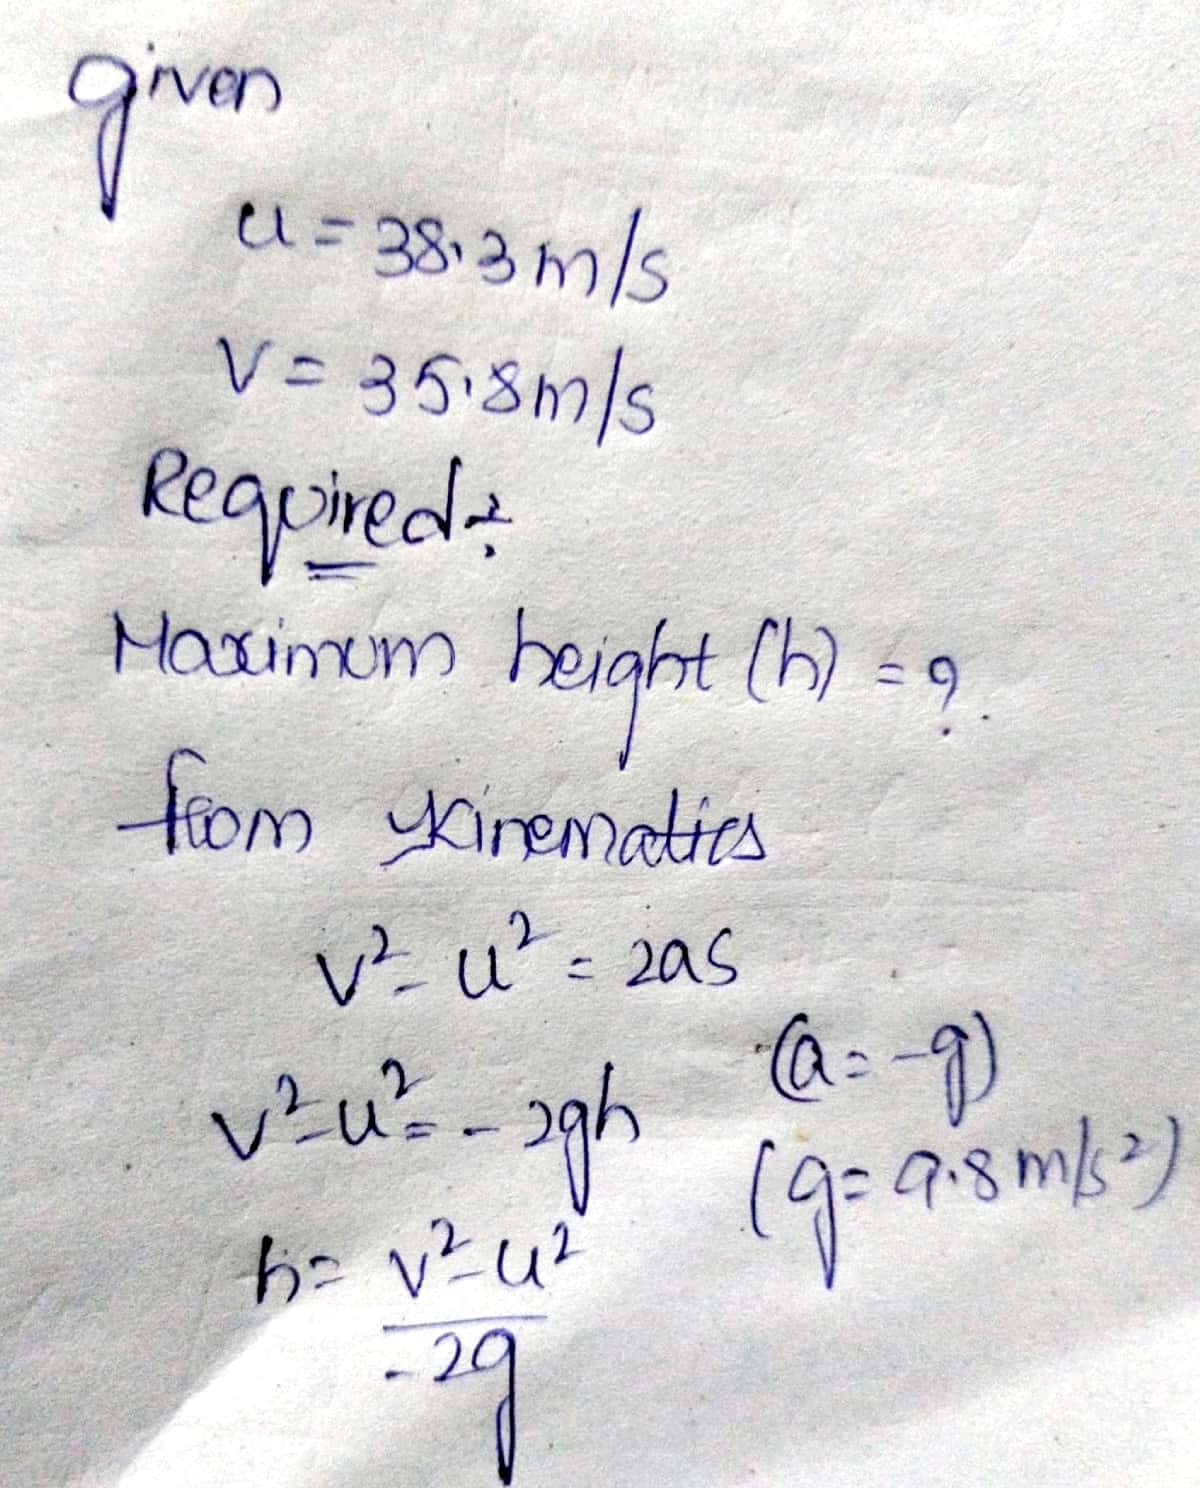 given
u = 38.3 m/s
v = 35.8 m/s
Required ÷
Maximum height (h) = ?
from Kinematics
v² - u² = 2as
(a = -g)
v² - u² = - 2gh
(g = 9.8 m/s²)
h = v² - u²
- 2g